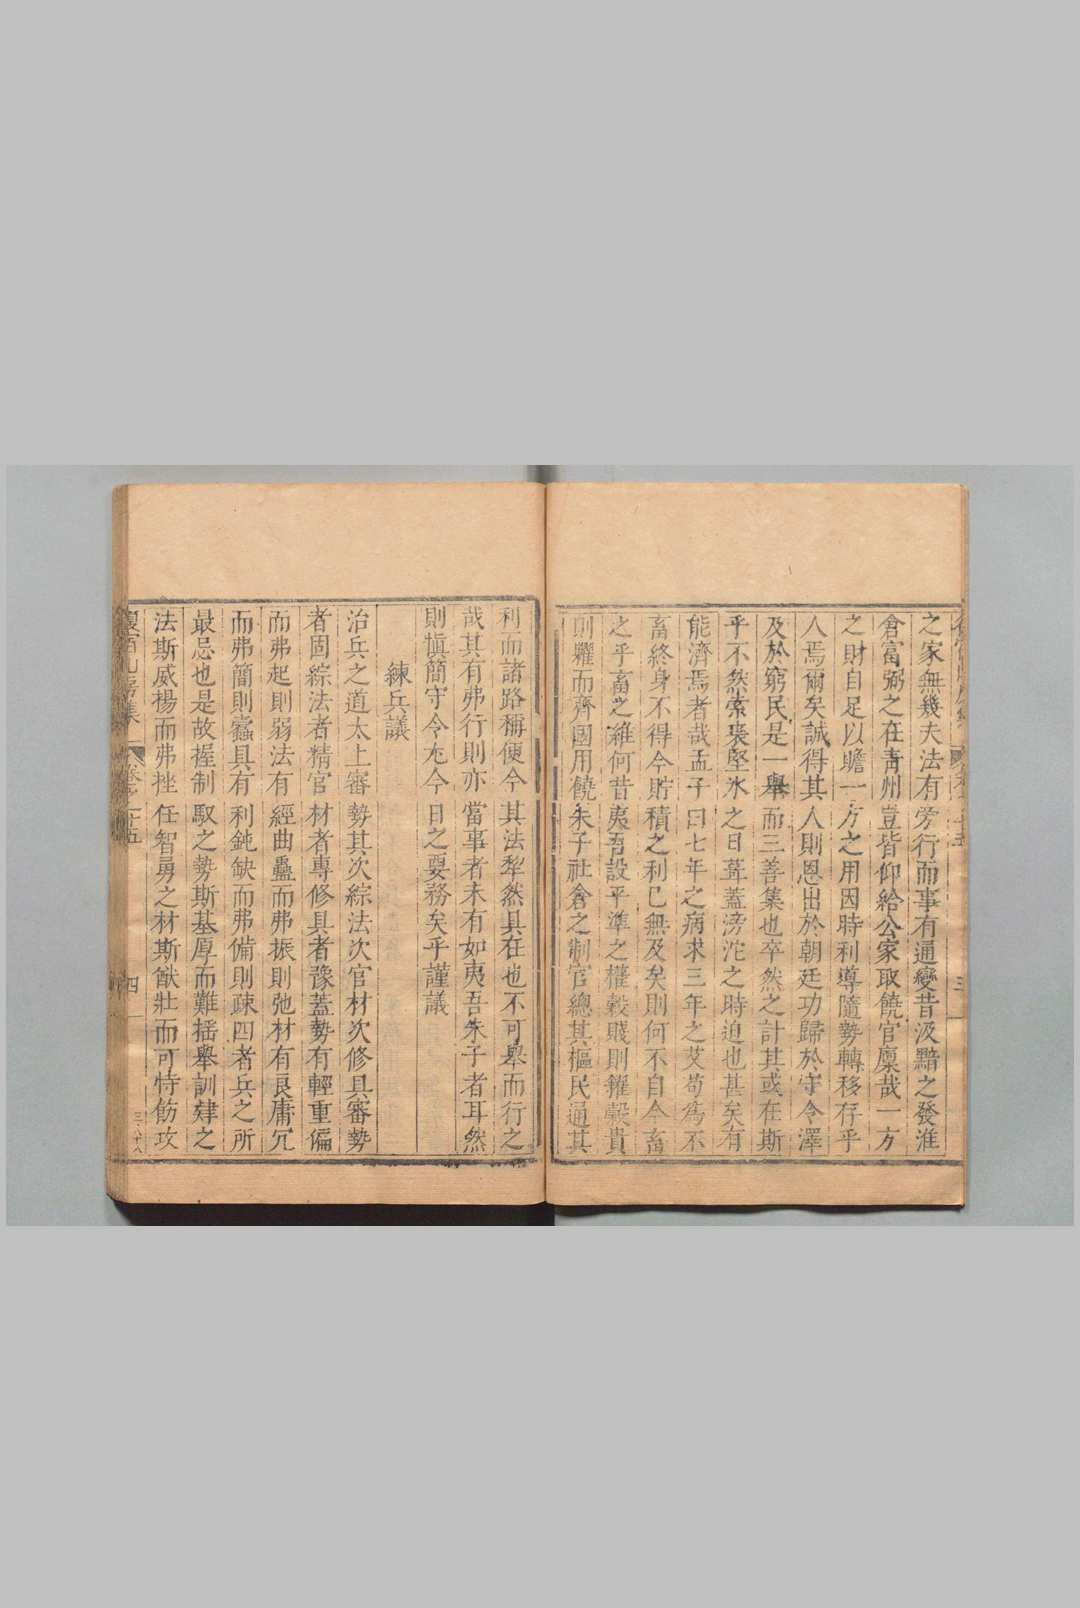 之家無幾夫法有旁行而事有通變昔汲黯之發淮
倉富弼之在靑州豈皆仰給公家取饒官廩哉一方
之財自足以贍一方之用因時利導隨勢轉移存乎
人焉爾矣誠得其人則恩出於朝廷功歸於守令澤
及於窮民是一舉而三善集也卒然之計其或在斯
乎不然索裘堅氷之日葺蓋滂沱之時迫也甚矣有
能濟焉者哉孟子曰七年之病求三年之艾苟爲不
畜終身不得今貯積之利已無及矣則何不自今畜
之乎畜之維何昔夷吾設平準之權穀賤則糴穀貴
則糶而齊國用饒朱子社倉之制官總其樞民通其
利而諸路稱便今其法犂然具在也不可舉而行之
哉其有弗行則亦當事者未有如夷吾朱子者耳然
則愼簡守令尤今日之要務矣乎謹議
練兵議
治兵之道太上審勢其次綜法次官材次修具審勢
者固綜法者精官材者專修具者豫蓋勢有輕重偏
而弗起則弱法有經曲蠱而弗振則弛材有良庸冗
而弗簡則蠹具有利鈍缺而弗備則疎四者兵之所
最忌也是故握制馭之勢斯基厚而難揺舉訓肄之
法斯威楊而弗挫任智勇之材斯猷壯而可恃飭攻
山房集
卷二十五
四
三六八